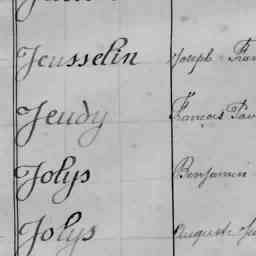 Jeusselin Joseph Fran
Jeudy François
Jolys Benjamin
Jolys Auguste